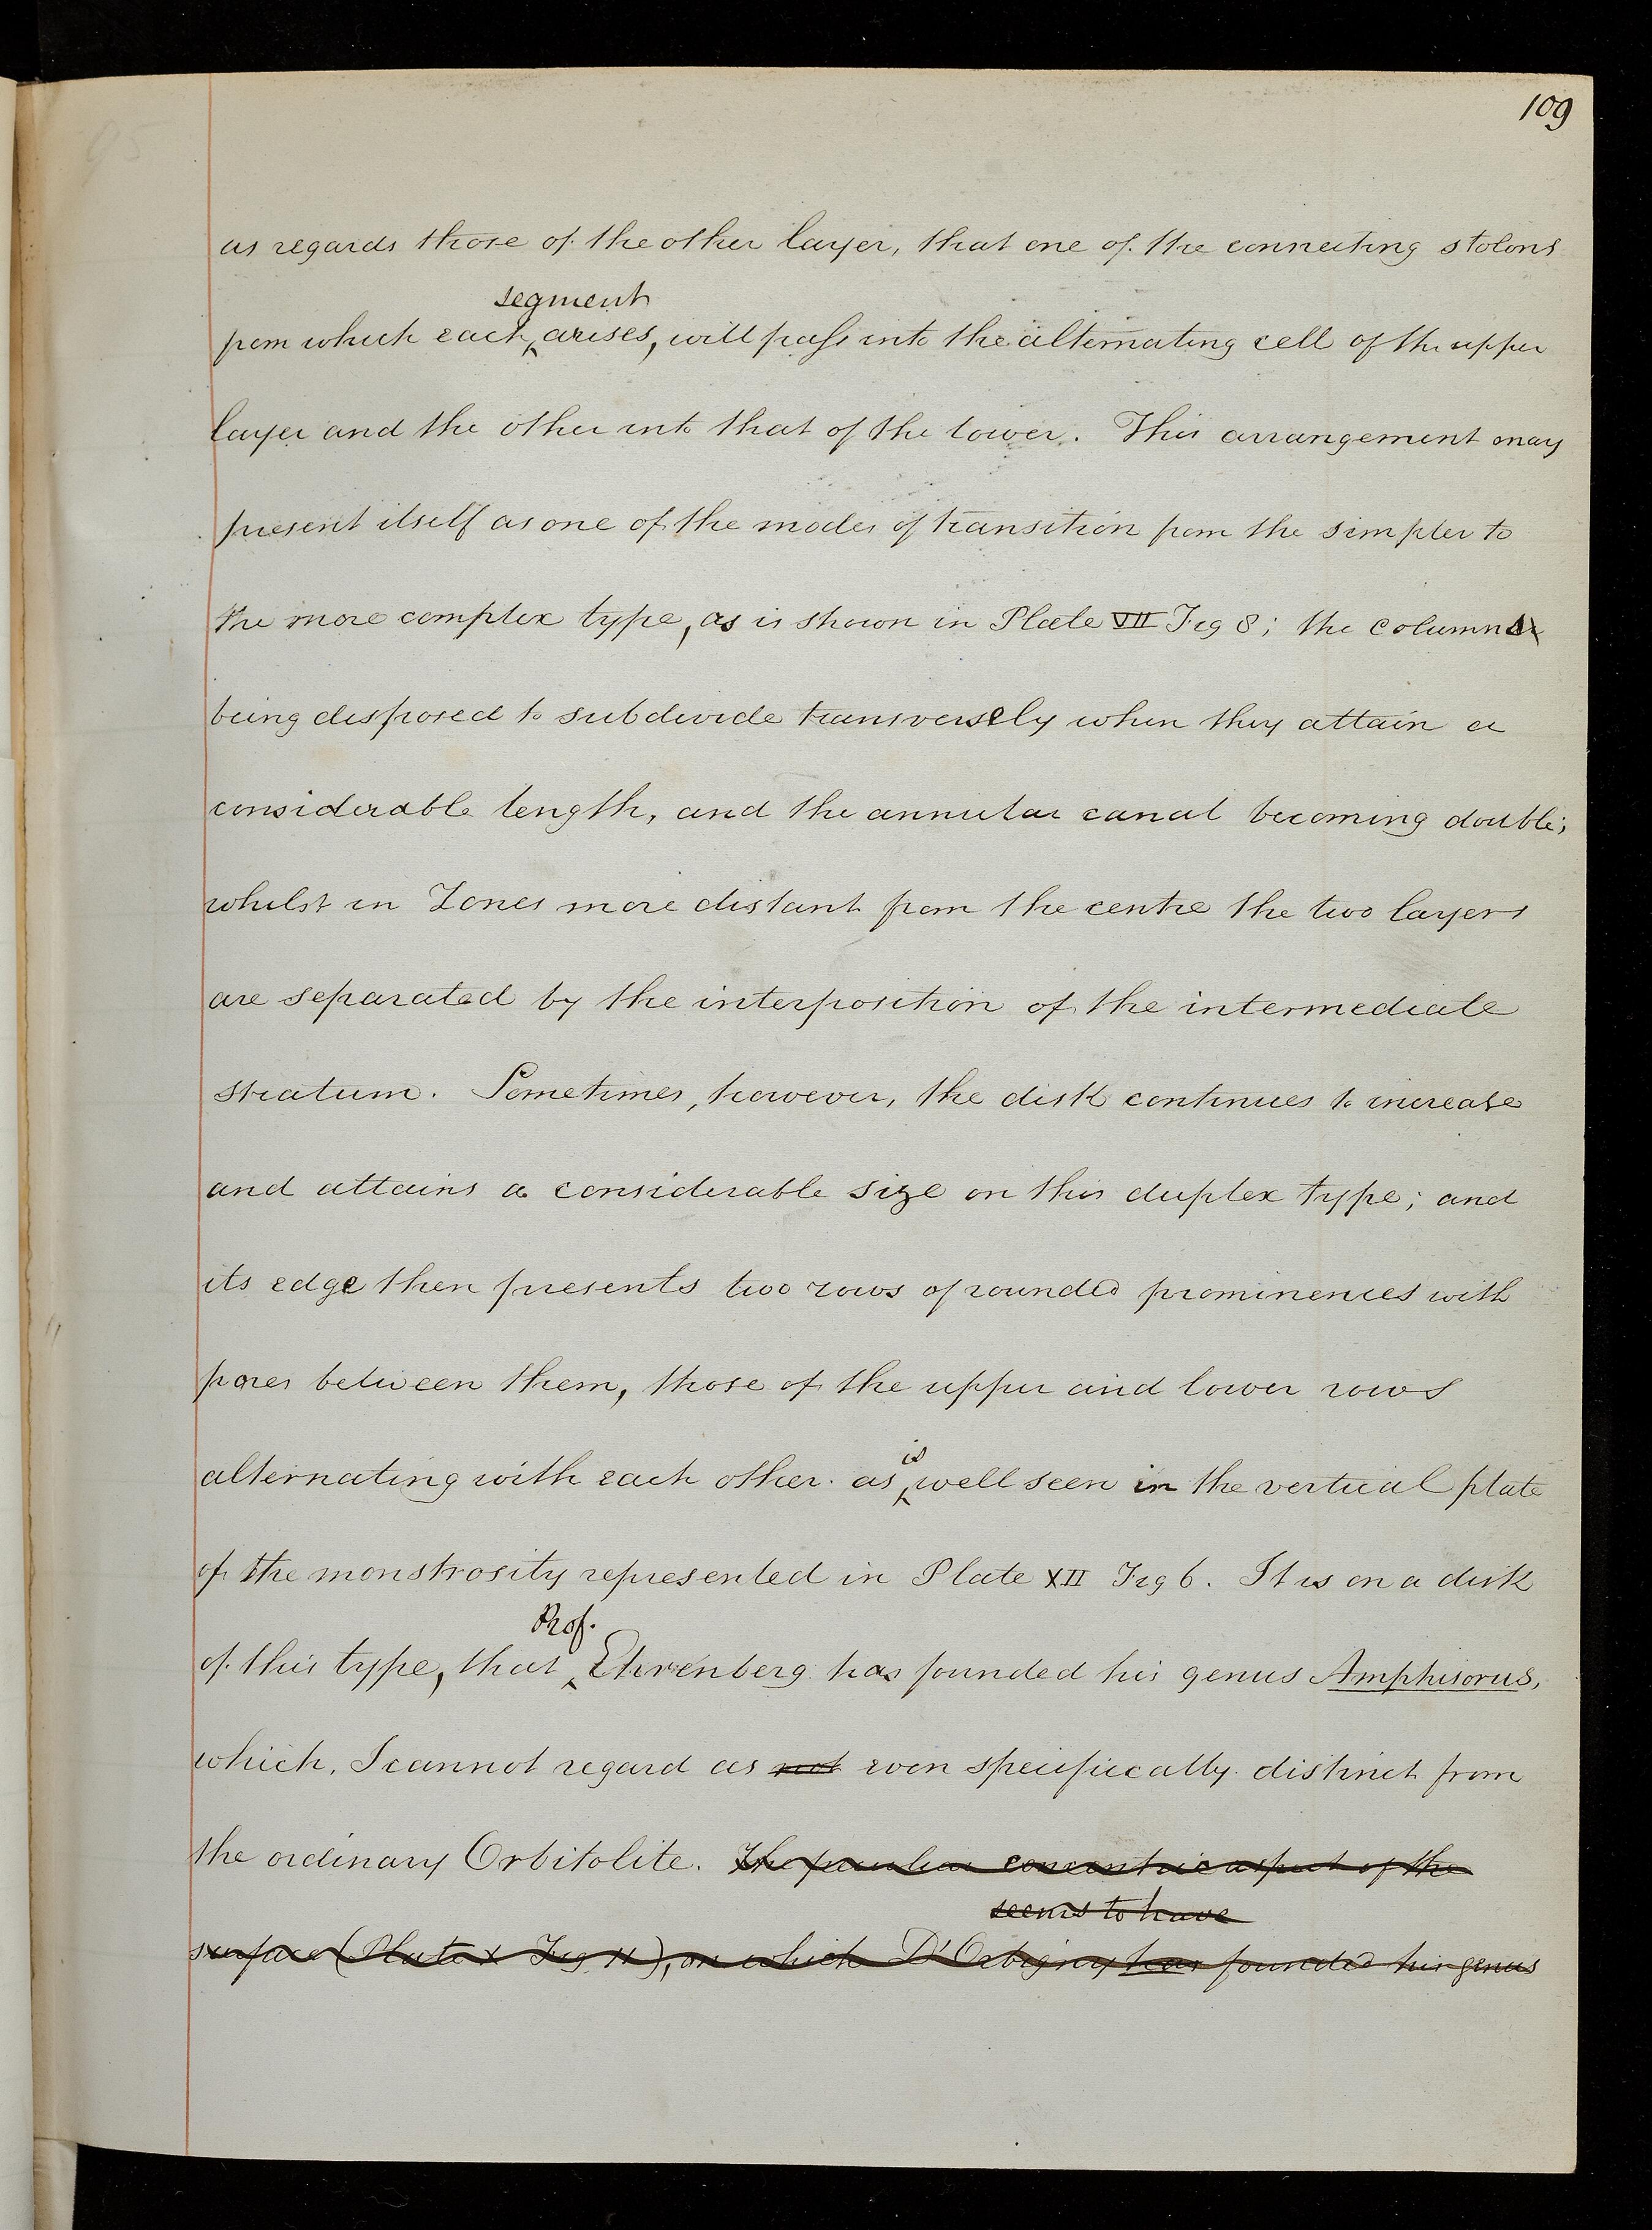 109
as regards those of the other layer, that one of the connecting stolons
segment
from which each arises, will pass into the alternating cell of the upper
layer and the other into that of the lower. This arrangement may
present itself as one of the modes of transition from the simpler to
the more complex type, as is shown in Plate VII Fig 8; the columns
being disposed to subdivide transversely when they attain a
considerable length, and the annular canal becoming double;
whilst in Zones more distant from the centre the two layers
are separated by the interposition of the intermediate
stratum. Sometimes, however, the disk continues to increase
and attains a considerable size on this duplex type; and
its edge then presents two rows of rounded prominences with
pores between them, those of the upper and lower rows
is
alternating with each other. as well seen in the vertical plate
of the monstrosity represented in Plate XII Fig 6. It is on a disk
Prof.
of this type, that Ehrenberg has founded his genus Amphisorus,
which, I cannot regard as not even specifically distinct from
the ordinary Orbitolite. The peculiar concentric aspect of the
seems to have
surface (Plate X Fig 11), on which D'Orbigny has founded his genus